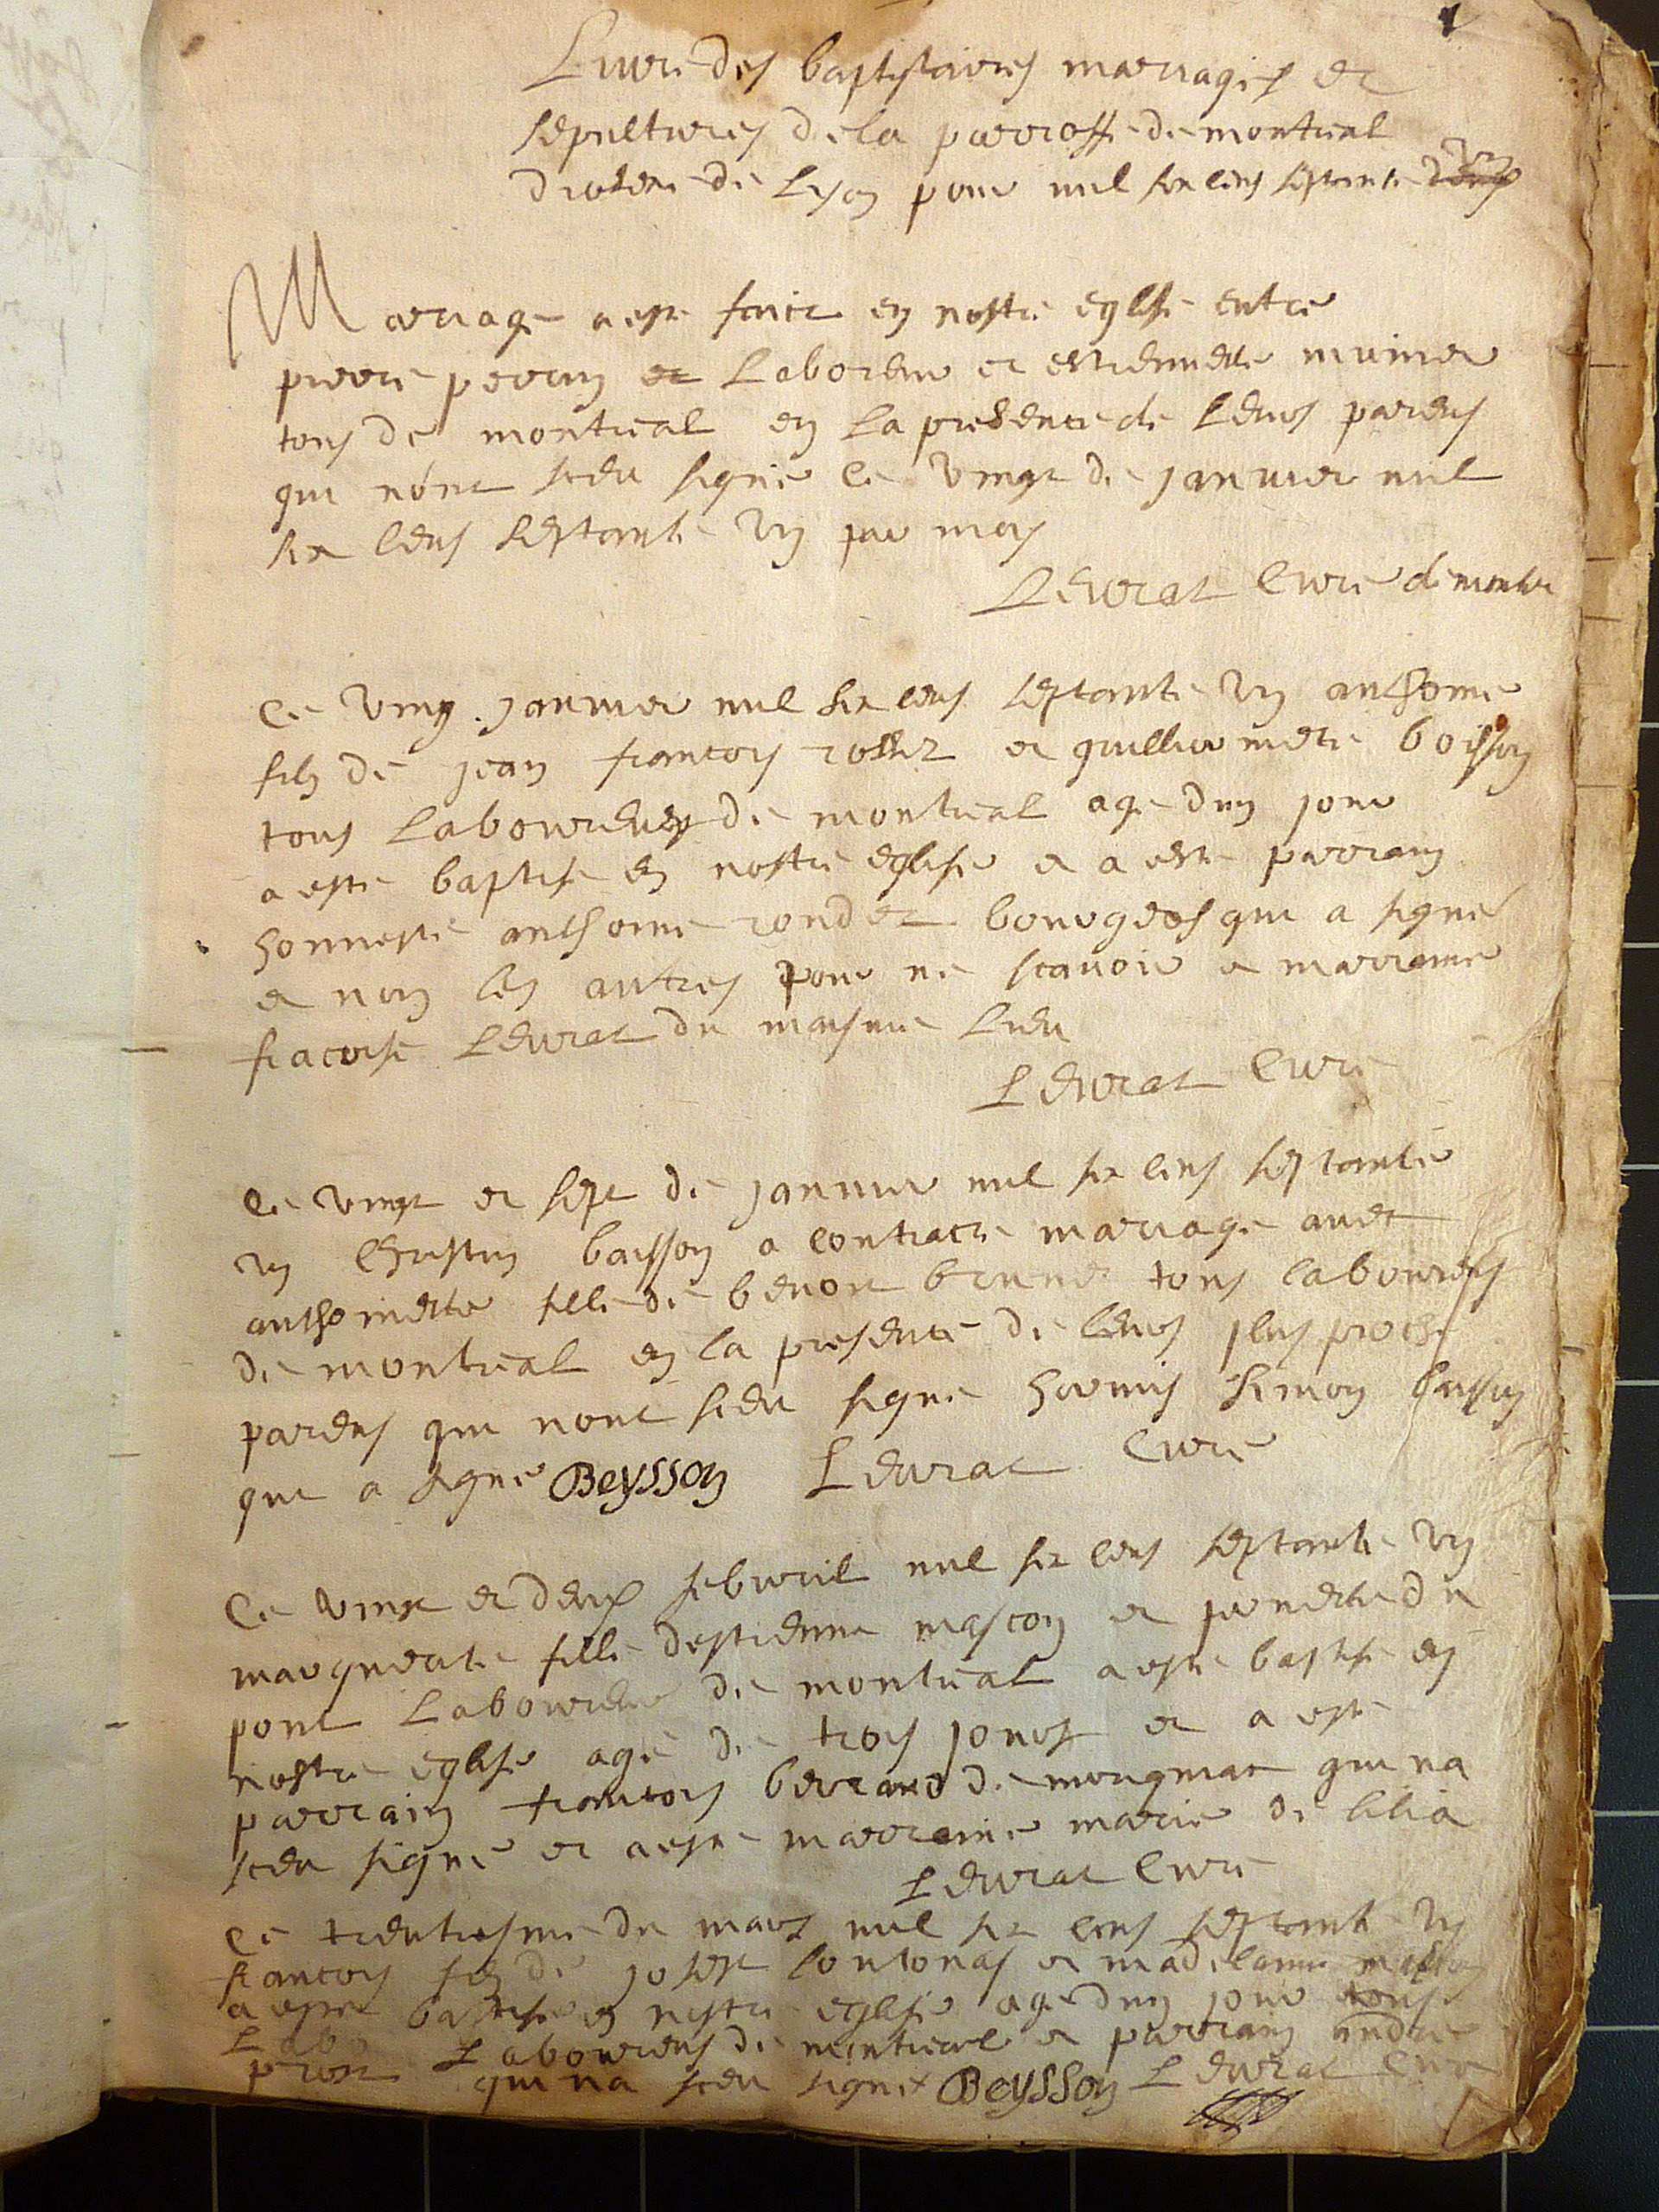 1
Livre des baptistaires mariages et
sepultures de la parroisse de montreal
diocese de Lyon pour mil six cens septante un
Mariage a este faict en nostre eglise entre
pierre perrin et Laboreur et estiennette
tous de montreal en la presence de leurs parens
qui nont sceu signé ce vingt de janvier mil
six cens septante un par moy
Levrat Curé de montre
Ce ving janvier mil six cens septante un anthoine
fils de jean francoys rosset et guillaumette boisson
tous laboureurs de montreal age dun jour
a este baptise en nostre eglise et a este parrain
honneste anthoine rondet bourgeois qui a signé
et non les autres pour ne scavoir et marraine
fracoise Levrat du maisme lieu
Levrat Curé
Ce vingt et sept de janvier mil six cens septante
un Christin baisson a contracte mariage avec
anthoinette fille de benoit brunet tous laboureurs
de montreal en la presence de leurs plus proche
parens qui nont sceu signe hormis simon baisson
qui a signé Beysson Levrat Curé
Ce vingt et deux febvril mil six cens septante un
marguerite fille destienne mascon et pernette du
pont Laboureur de montreal a este baptise en
nostre eglise agé de trois jours et a este
parrain francoys berrand de mongnat qui na
sceu signé et a este marraine marie de lilia
Levrat Curé
Ce trentiesme de mars mil six cens septante un
francoys fils de josept contonas et madelaine
a este baptise en nostre eglise age dun jour tous
Labo
Laboureurs de montreal et parrain andre
prost qui na sceu signé Beysson Levrat Curé